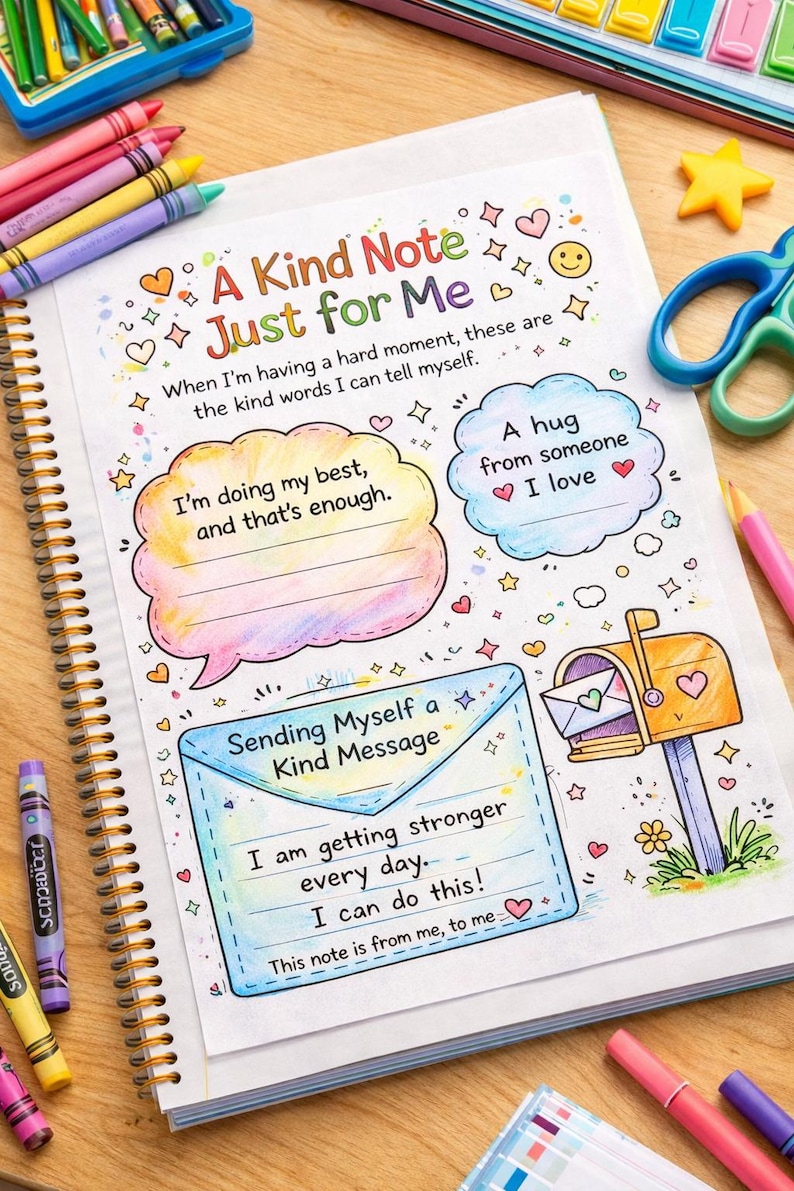 A Kind Note
Just for Me
When I'm having a hard moment, these are
the kind words I can tell myself.
I'm doing my best,
and that's enough.
A hug
from someone
I love
Sending Myself a
Kind Message
I am getting stronger
every day.
I can do this!
This note is from me, to me